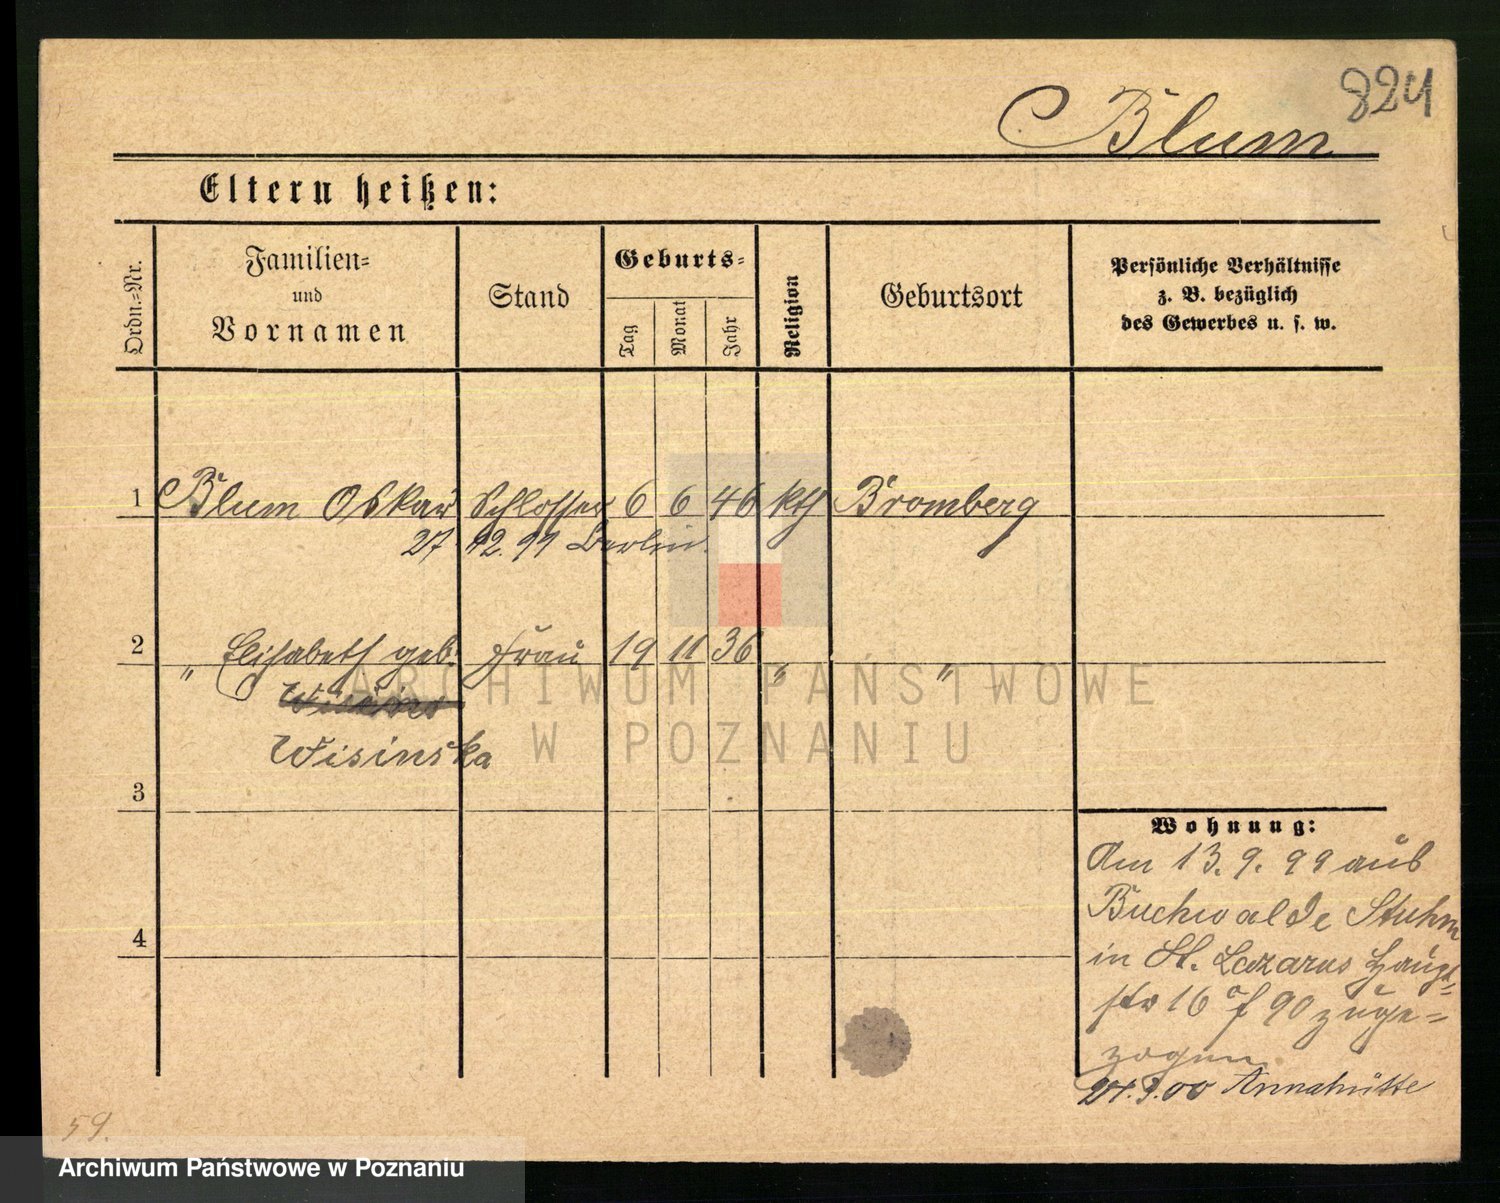 824
Blum
Eltern heißen:
Ordn.-Nr.
Familien-
und
Vornamen
Stand
Geburts-
Tag
Monat
Jahr
Religion
Geburtsort
Persönliche Verhältnisse
z. B. bezüglich
des Gewerbes u. s. w.
1 Blum Oskar Schlosser 6 6 46 kth Bromberg
27. 12. 99 Berlin.
2 „ Elisabeth geb. Frau 19 11 36 „ „
Wisinska
3
4
Wohnung:
Am 13. 9. 99 aus
Buchwalde Stuhm
in St. Lazarus Haupt-
str 16 a/f 90 zuge-
zogen.
Annahütte
59.
ARCHIWUM PAŃSTWOWE
W POZNANIU
Archiwum Państwowe w Poznaniu